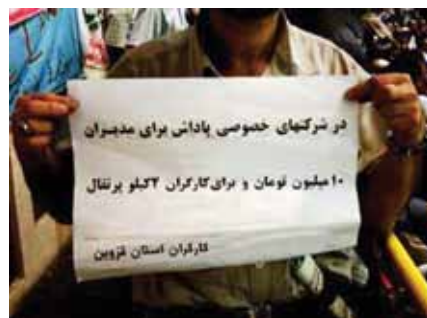 در شرکتهای خصوصی پاداش برای مدیران
۱۰ میلیون تومان و برای کارگران ۲کیلو پرتقال
کارگران استان قزوین